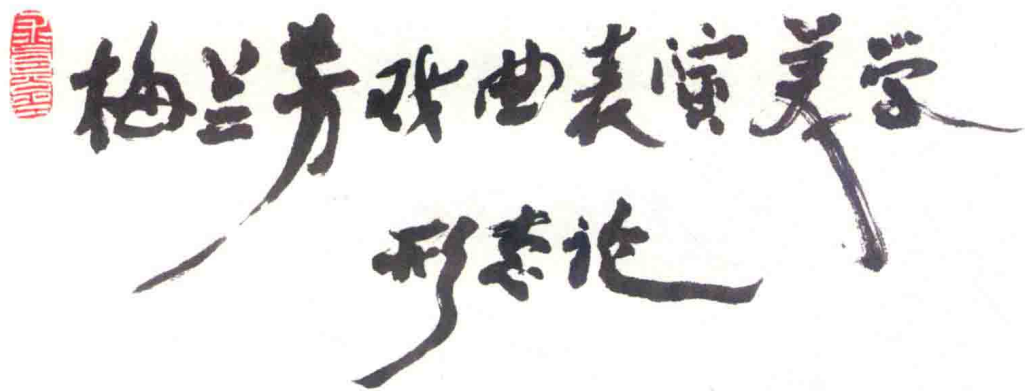 梅兰芳戏曲表演美学
形态论